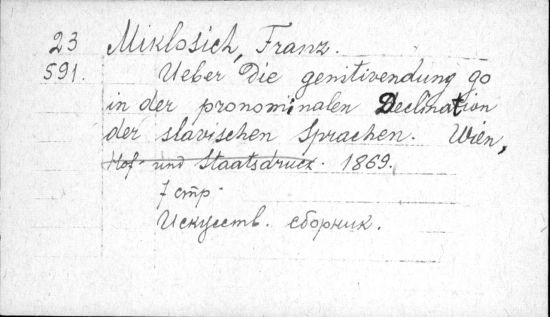 23 Miklosich, Franz.
591. Ueber Die genitivendung go
in der pronominalen Declination
der slavischen Sprachen. Wien,
Hof- und Staatsdruck. 1869.
7 стр.
Искусств. сборник.